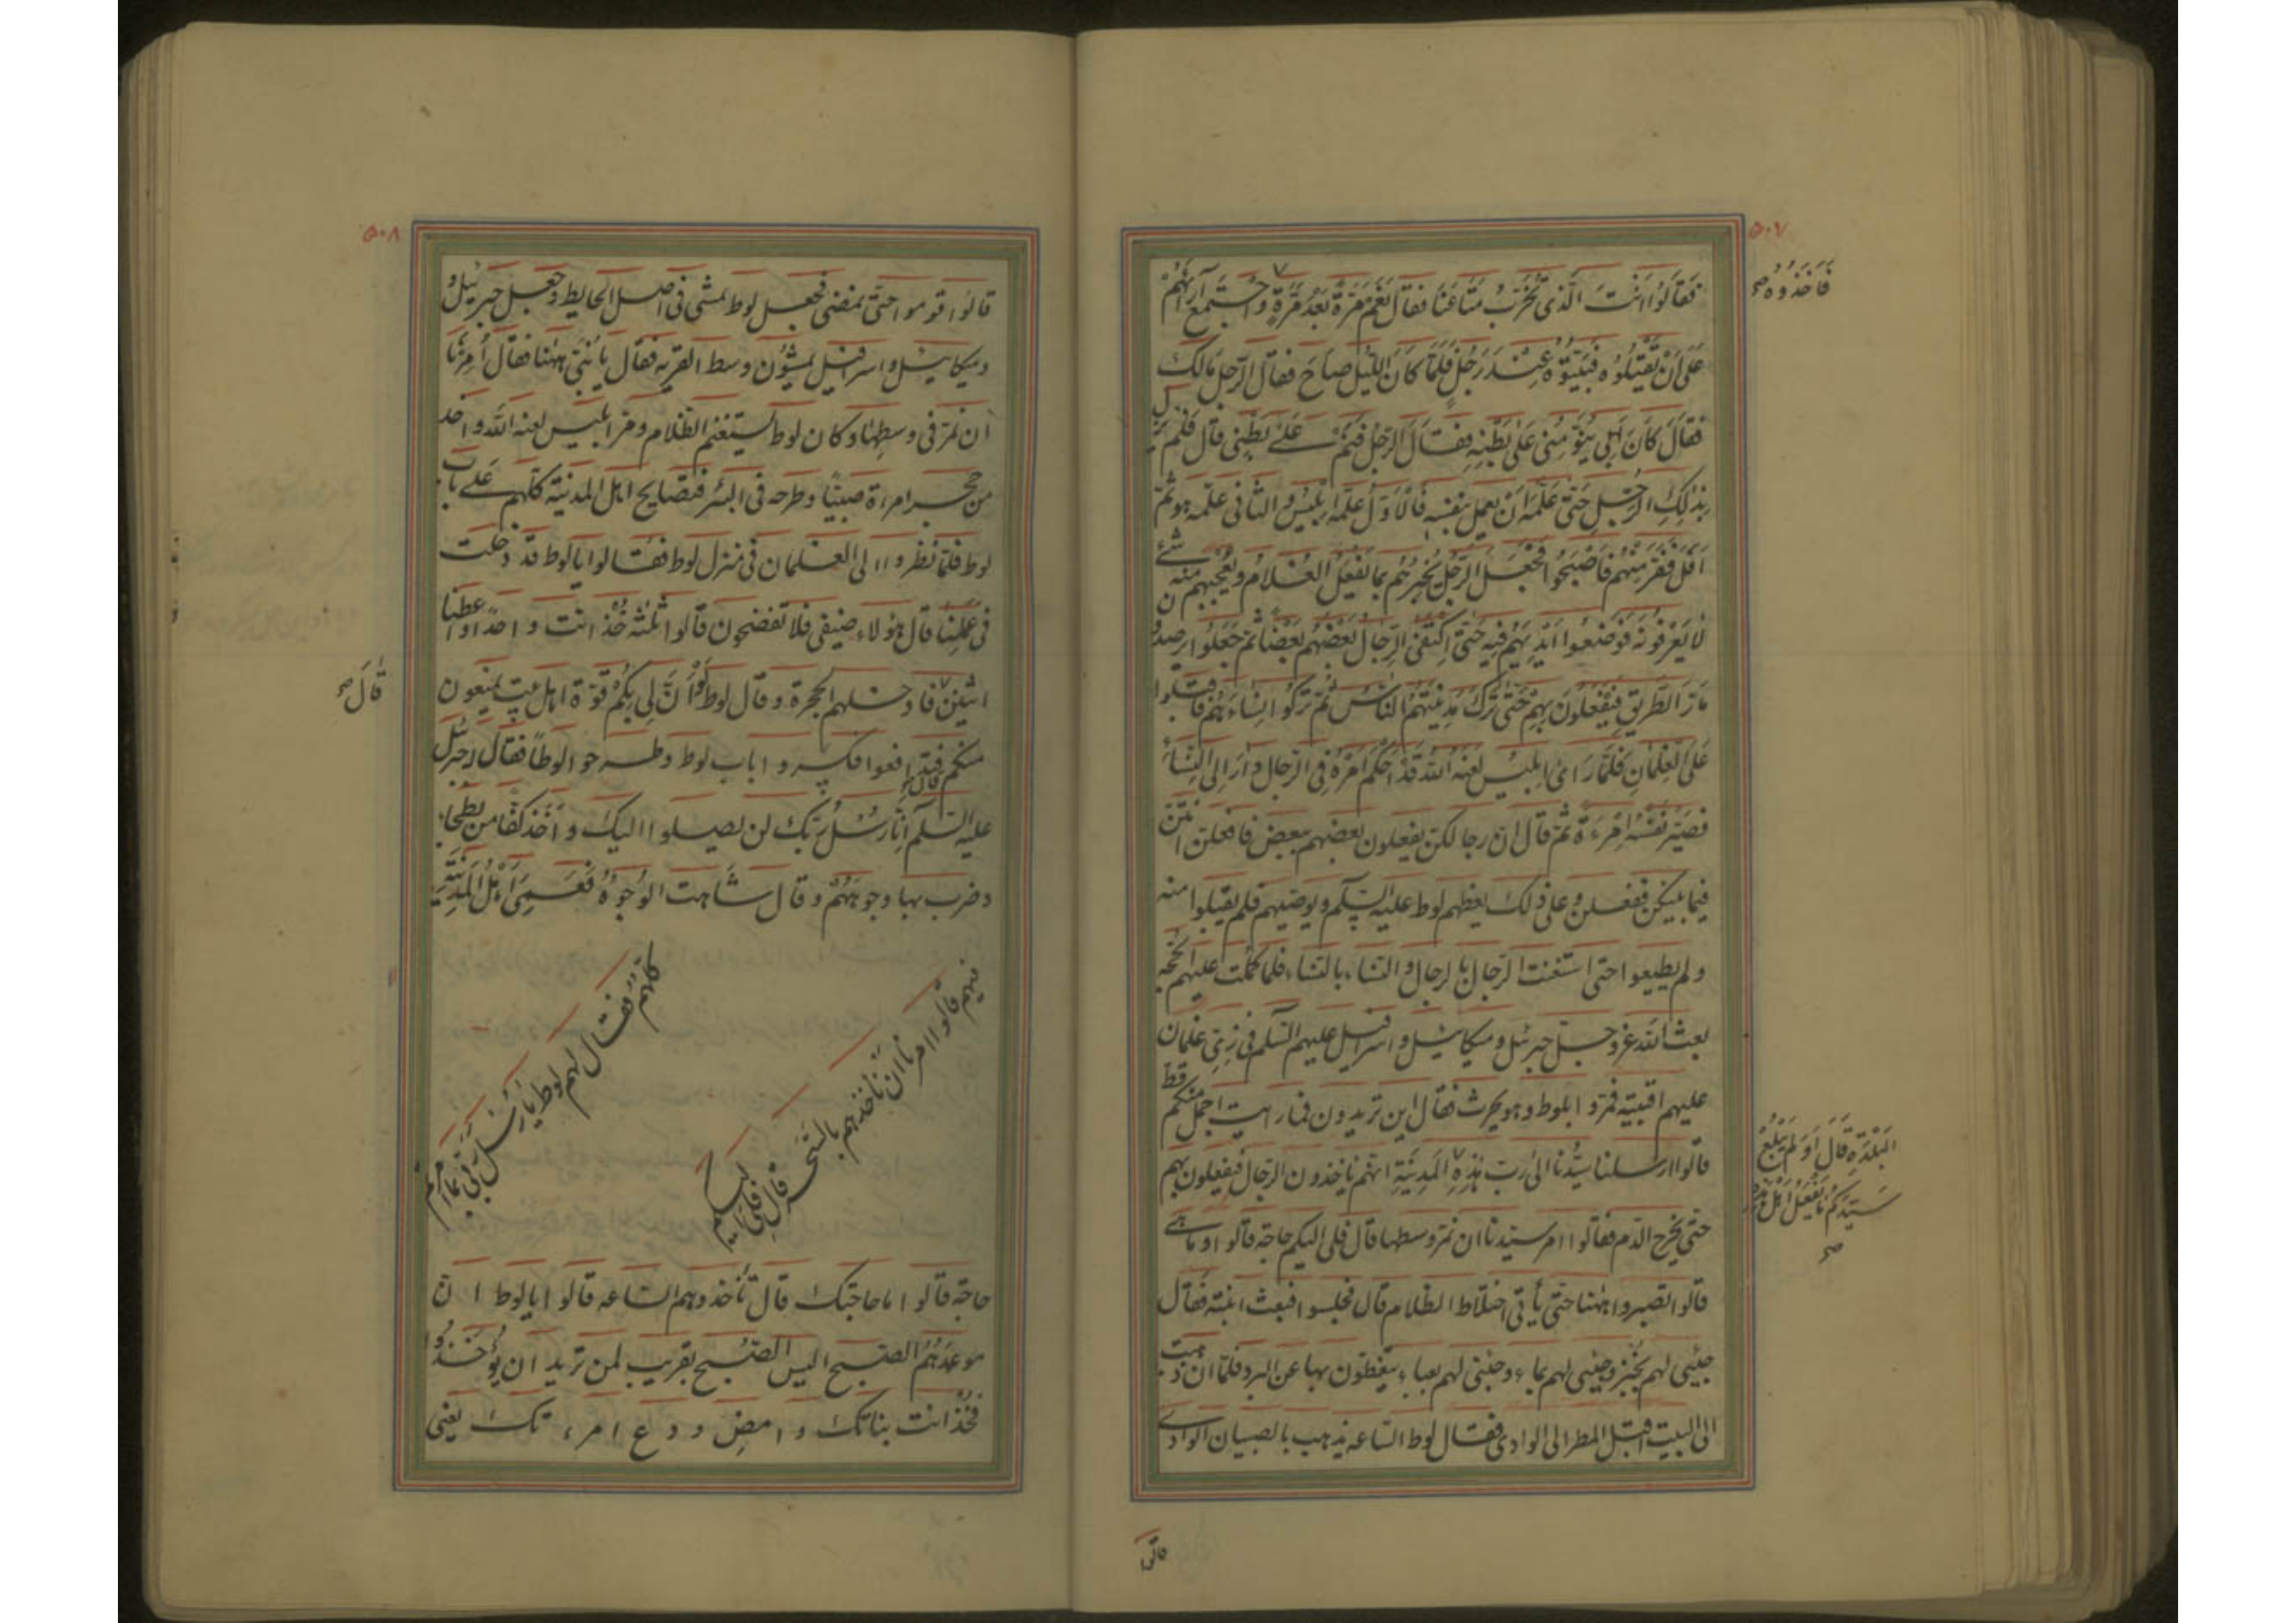 ٥٠٧
فَقَالُوا اَنْتَ الَّذی تُخَرِّبُ مَتَاعَنَا فَقَالَ نَعَمْ مَرَّةً بَعْدَ مَرَّةٍ وَاجْتَمَعَ رَأْیُهُمْ
فَاَخَذُوهُ صح
عَلَی اَنْ یَقْتُلُوهُ فَبَیَّتُوهُ عِنْدَ رَجُلٍ فَلَمَّا کَانَ اللَّیْلُ صاحَ فقال الرَّجُل مَالَکَ
فَقَالَ کَانَ اَبِی یُنَوِّمُنِی عَلَی بَطْنِهِ فَقَالَ الرَّجُلُ فَنَمْ عَلَی بَطْنِی قَالَ فَلَمْ یَزَلْ
بِذَلِکَ الرَّجُلِ حَتَّی عَلَّمَهُ اَنْ یعمل بنفسه فَالْاَوَّلُ عَلَّمَهُ اِبْلِیسُ وَالثَّانِی عَلَّمَهُ هُوَ ثُمَّ
فَفَرَّ مِنْهُمْ فَاَصْبَحُوا فَجَعَلَ الرَّجُلُ یُخْبِرُهُمْ بِمَا یَفْعَلُ الْغُلَامُ وَیُعَجِّبُهُمْ مِنْهُ شَیْءٌ
لَا یَعْرِفُونَهُ فَوَضَعُوا اَیْدِیَهُمْ فِیهِ حَتَّی اکْتَفَی الرِّجَالُ بَعْضُهُمْ بَعْضًا ثُمَّ جَعَلُوا یرصدون
مَارَّ الطَّرِیقِ فَیَفْعَلُونَ بِهِمْ حَتَّی تَرَکَ مَدِینَتَهُمُ النَّاسُ ثُمَّ تَرَکُوا نِسَاءَهُمْ فَاَقْبَلُوا
عَلَی الْغِلْمَانِ فَلَمَّا رَاَی اِبْلِیسُ لعنه اللّه اَنَّهُ قَدْ اَحْکَمَ اَمْرَهُ فِی الرِّجَالِ دَارَ اِلَی النِّسَاءِ
فَصَیَّرَ نَفْسَهُ اِمْرَءَةً ثُمَّ قَالَ ان رجالکن یفعلون بعضهم ببعض فافعلن انتن
فیما بینکن ففعلن وعلی ذلک یعظهم لوط علیه السلم ویوصیهم فلم یقبلوا منه
ولم یطیعوا حتی استغنت الرجال بالرجال والنساء بالنساء فلما کملت علیهم الحجة
بعث اللّه عز وجل جبرئیل ومیکائیل واسرافیل علیهم السلم فی زی غلمان
علیهم اقبیة فمروا بلوط وهو یحرث فقال این تریدون فما رایت اجمل منکم قط
قالوا ارسلنا سیدنا الی رب هذه المدینة انهم یأخذون الرجال فیفعلون بهم
البَلْدَةِ قَالَ اَوَ لَمْ یَبْلُغْ
سَیِّدَکُمْ مَا یَفْعَلُ اَهْلُ هذه
صح
حتی یخرج الدم فقالوا امر سیدنا ان نمر وسطها قال فلی الیکم حاجة قالوا وما هی
قالوا تصبروا ههنا حتی یأتی اختلاط الظلام قال فجلسوا فبعث ابنته فقال
جیئی لهم بخبز وجیئی لهم بماء وجیئی لهم بعباء یتغطون بها عن البرد فلما ان ذهبت
الی البیت اقبل المطر الی الوادی فقال لوط الساعه یذهب بالصبیان الوادی
قالوا
٥٠٨
قالوا قوموا حتی نمضی فجعل لوط یمشی فی اصل الحایط وجعل جبرئیل و
ومیکائیل واسرافیل یمشون وسط القریه فقال یا بنی ههنا فقال اُمِرْنَا
ان نمر فی وسطها وکان لوط یستغنم الظلام ومر ابلیس لعنه اللّه واخذ
من حجر امرءة صبیًا وطرحه فی البئر فتصایح اهل المدینة کلهم علی باب
لوط فلما نظروا الی الغلمان فی منزل لوط فقالوا یا لوط قد دخلت
فی عملنا قال هؤلاء ضیفی فلا تفضحون قالوا ثلثة خذ انت واحدا واعطنا
اثنین فادخلهم الحجرة وقال لوط لَوْ اَنَّ لِی بِکُمْ قوّة اهل بیت یمنعون
قَالَ صح
منکم قال فتدافعوا فکسروا باب لوط وطرحوا لوطاً فقال له جبرئیل
علیه السلم اِنَّا رُسُلُ رَبِّکَ لن یصلوا الیک واَخَذَ کَفًّا من بطحاء
وضرب بها وجوههم وقال شاهت الوجوه فَعَمِیَ اَهْلُ الْمَدِینَةِ
کلهم فقال لهم لوط یا رُسُلَ رَبِّی بما امرکم
فیهم قالوا امرنا ان ناخذهم بالسحر قال فلی الیکم
حاجة قالوا ما حاجتک قال تأخذوهم الساعه قالوا یا لوط ان
موعدهم الصبح الیس الصبح بقریب لمن ترید ان یُؤْخَذُوا
فَخُذْ انت بناتک وامضِ ودع امرءتک یعنی